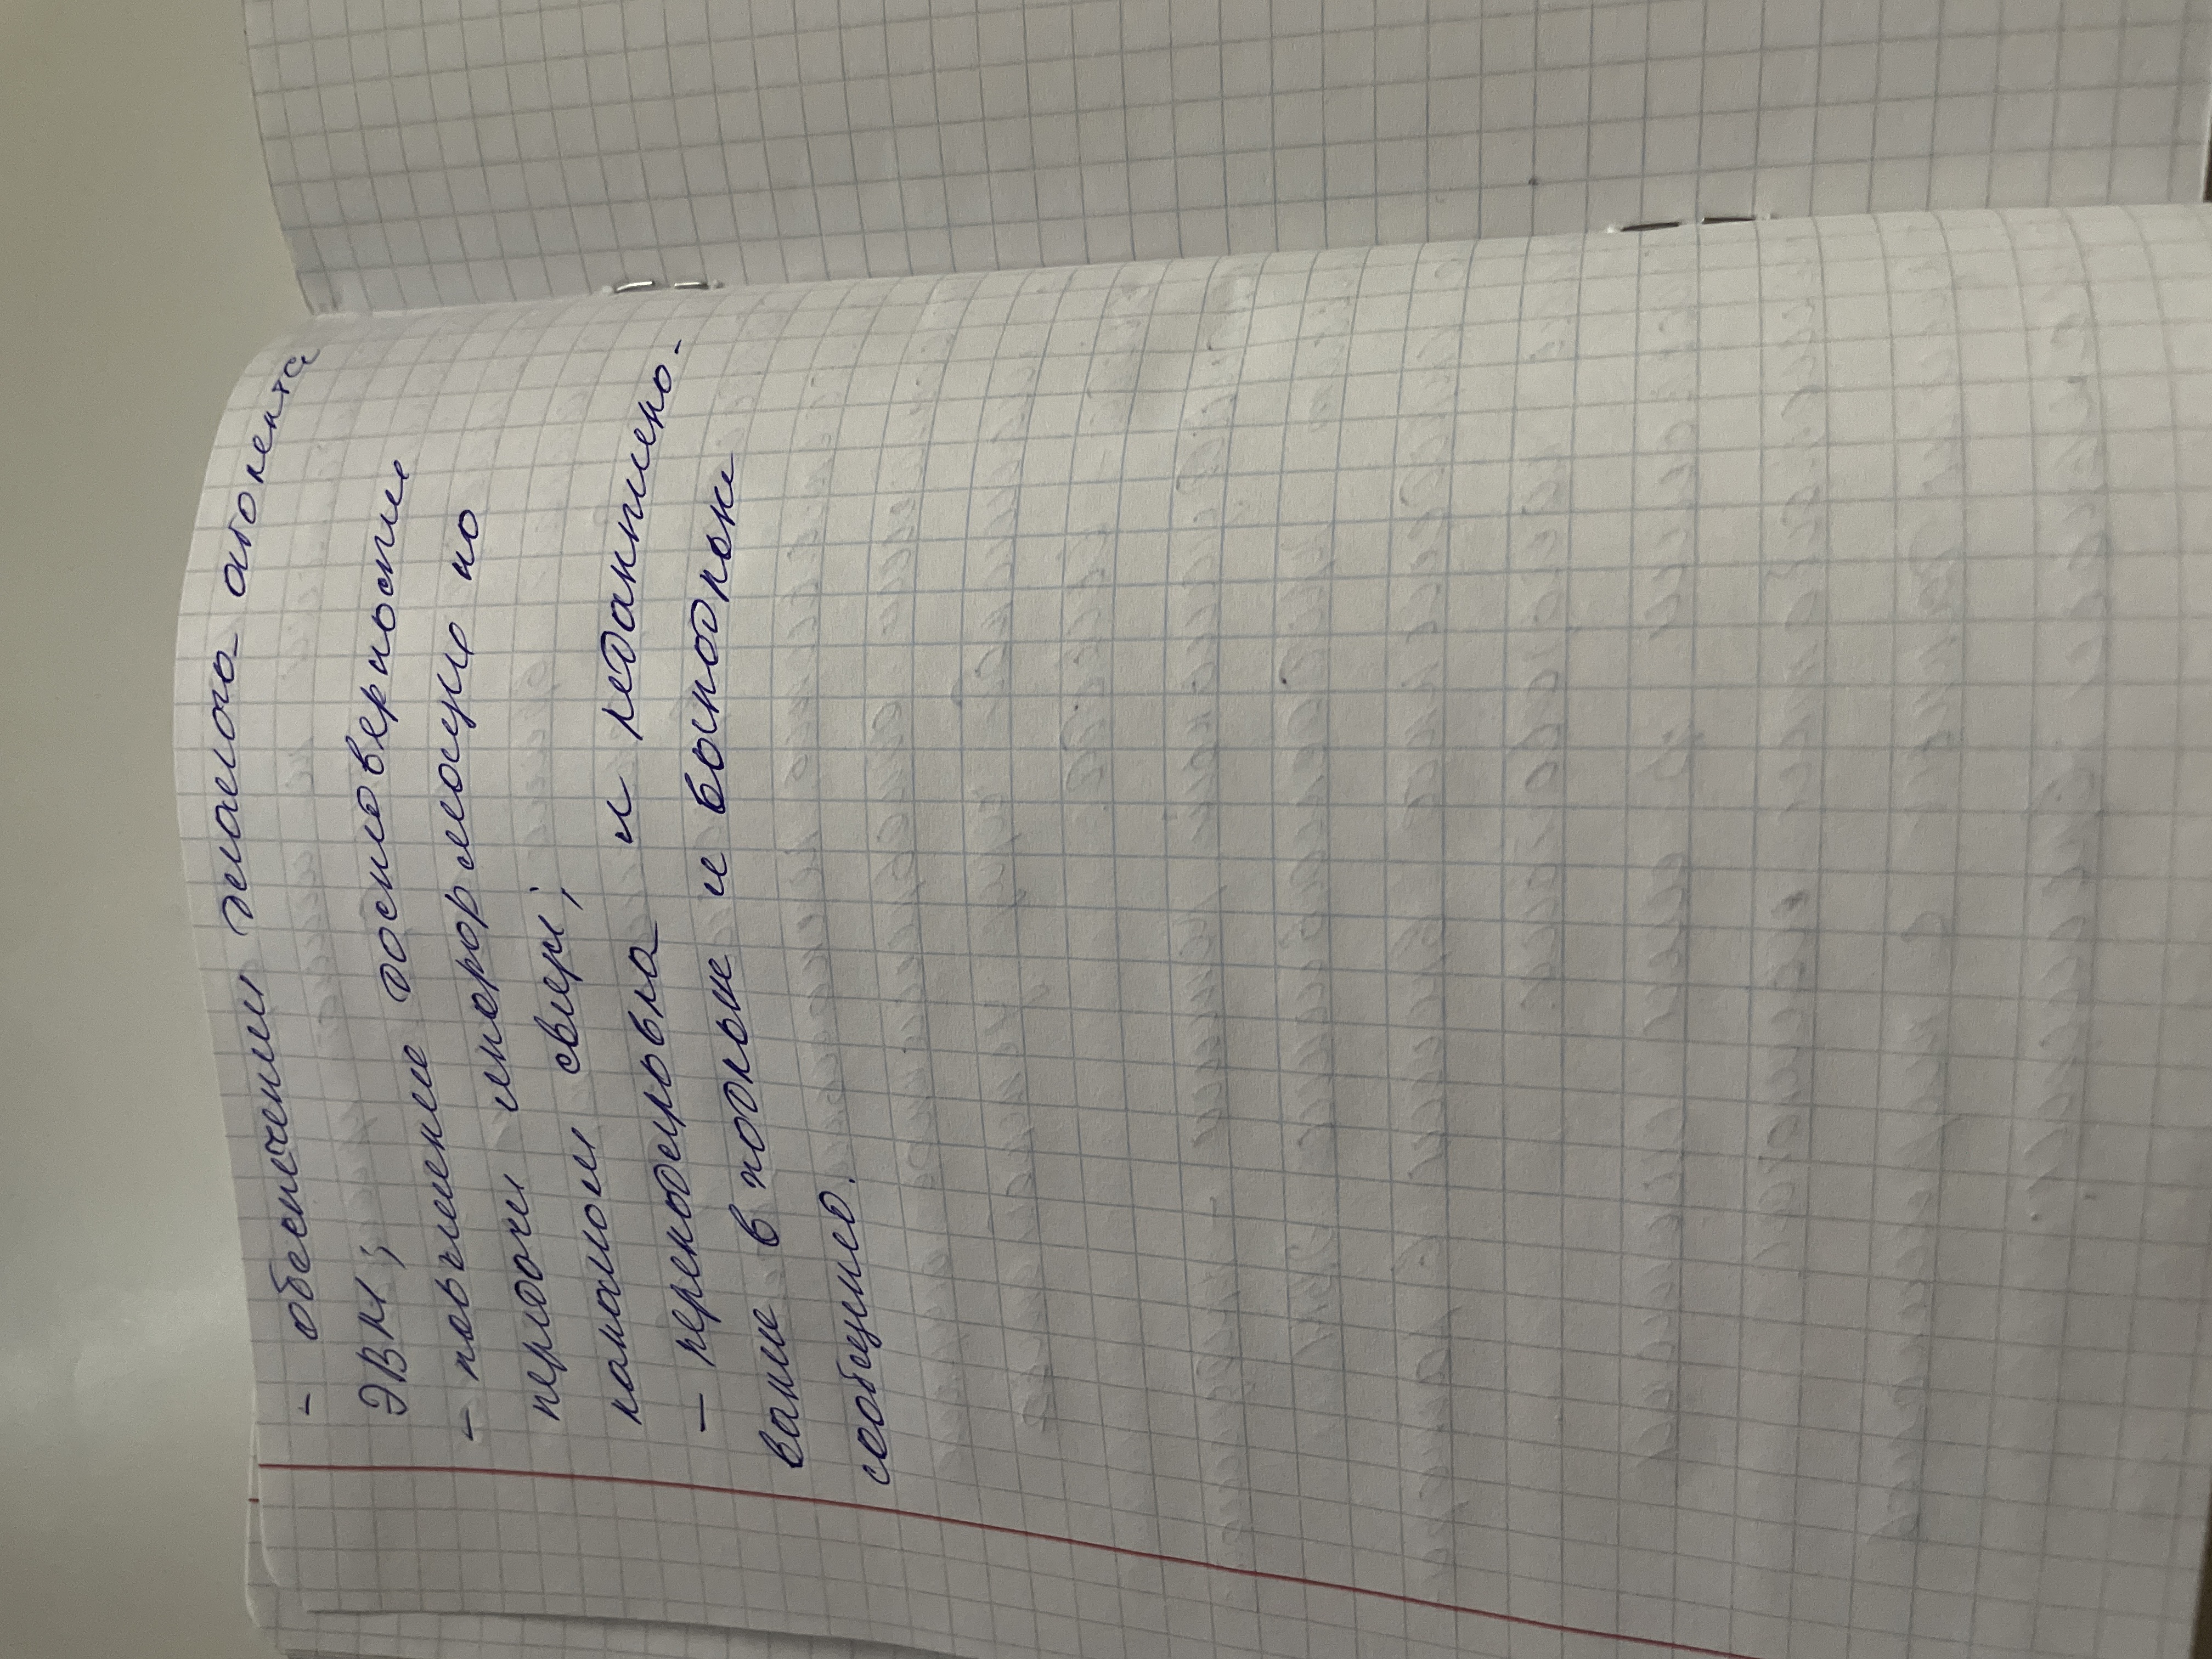 - обеспечении диалога абонента
ЭВМ;
- повышение достоверности
передачи информацию по
каналом связи;
- перекодировка и редактиро-
вание в потоке и выходных
сообщению.